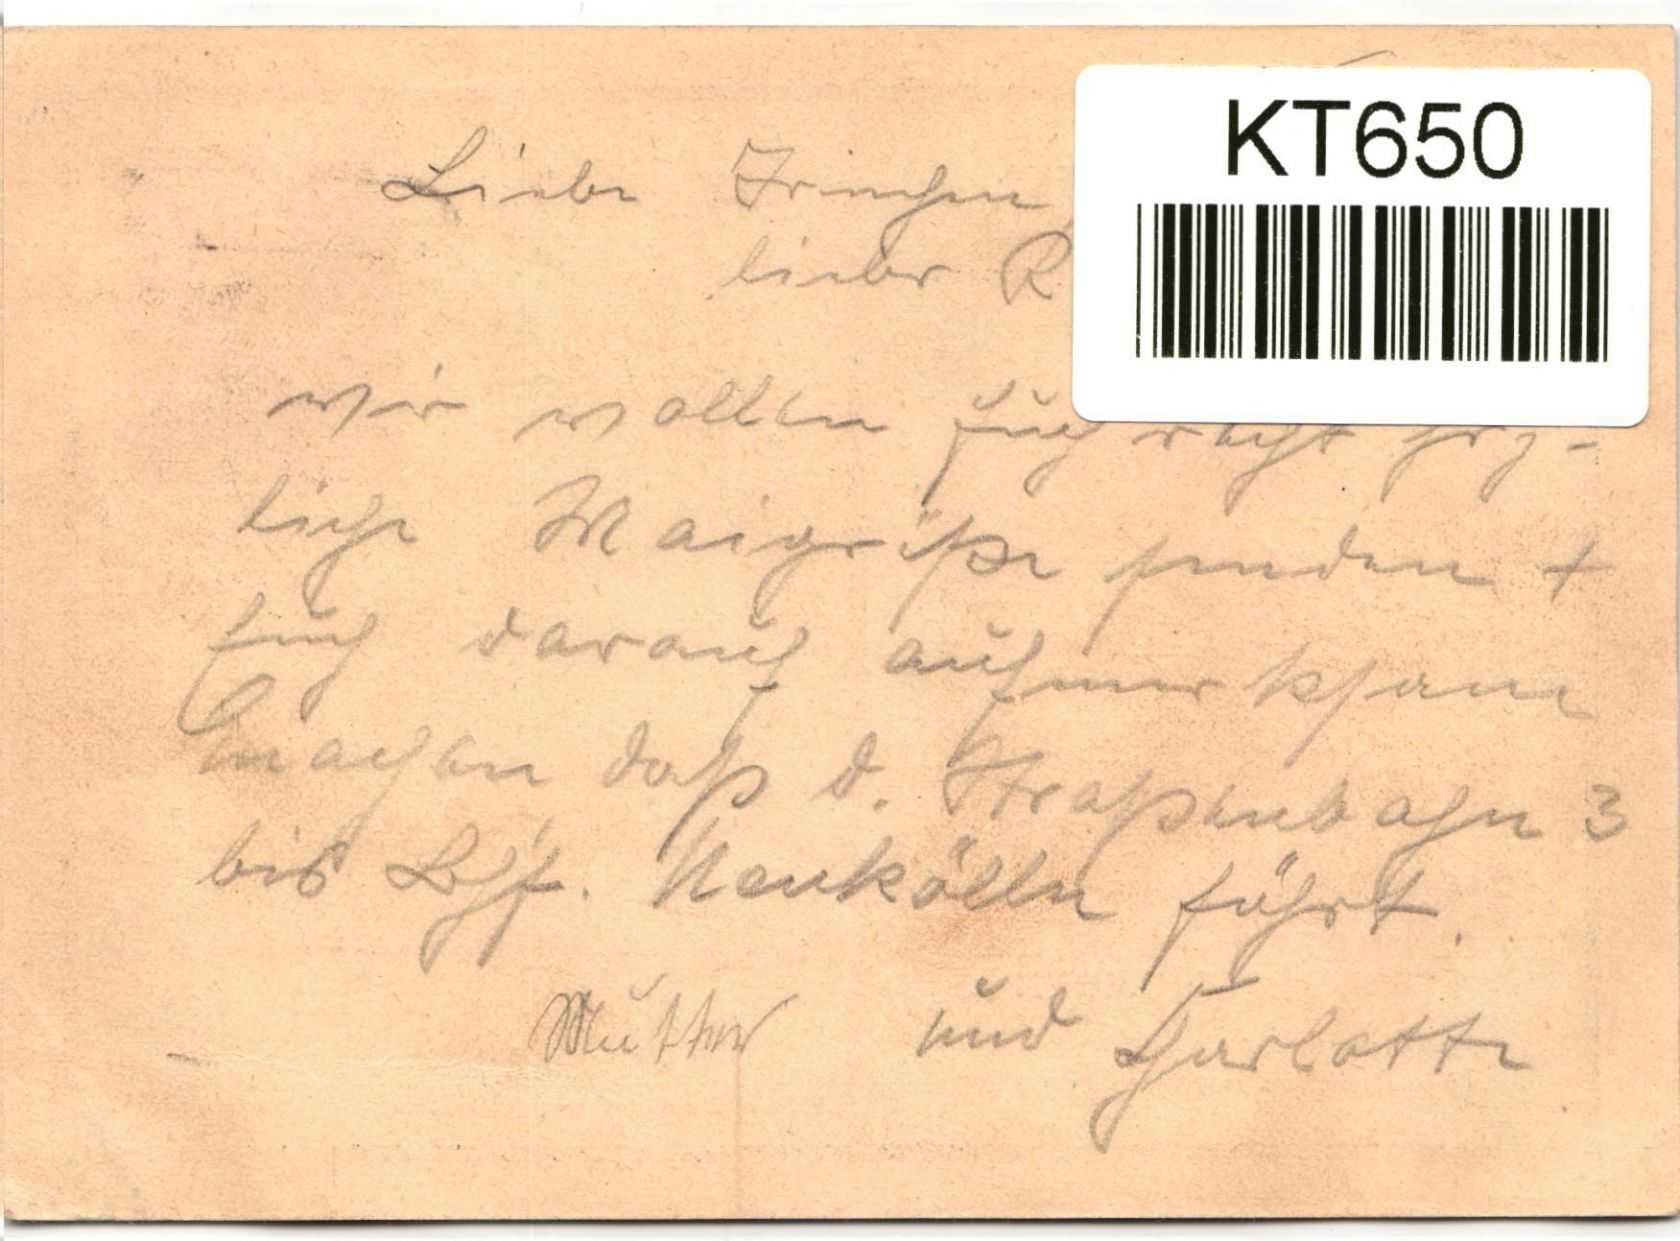 KT650
Liebe Irinchen,
lieber R
wir wollen Euch recht herz-
liche Maigrüße senden +
Euch darauf aufmerksam
machen daß d. Straßenbahn 3
bis Bhf. Neukölln fährt.
Mutter und Charlotte